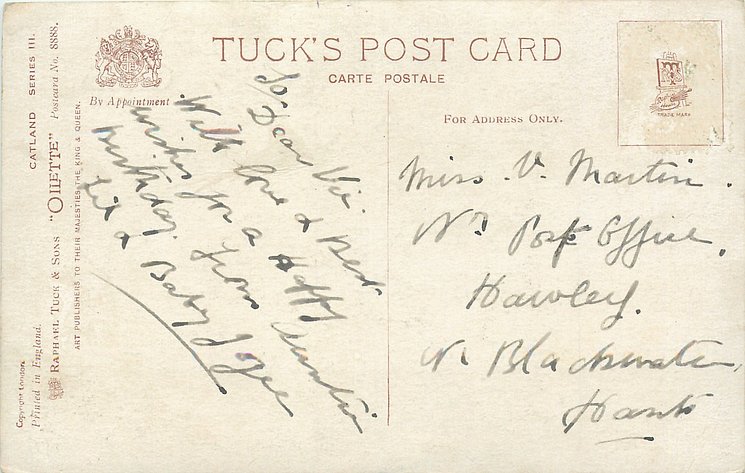 TUCK'S POST CARD
CARTE POSTALE
By Appointment
FOR ADDRESS ONLY.
TRADE MARK
CATLAND SERIES III.
"OILETTE" Postcard No. 8888.
RAPHAEL TUCK & SONS
ART PUBLISHERS TO THEIR MAJESTIES THE KING & QUEEN.
Copyright London.
Printed in England.
To Dear Vie.
With love & Best
wishes for a Happy
birthday. from Auntie
Lil & Baby Joyce
Miss V. Martin.
Nr Post Office,
Hawley.
Nr Blackwater,
Hants